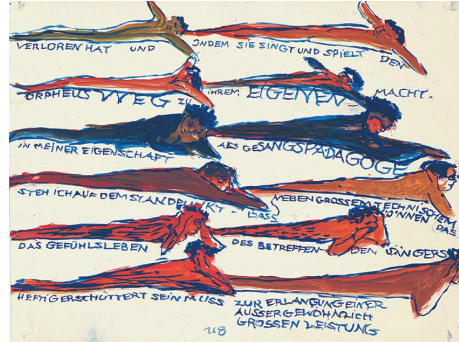 VERLOREN HAT UND INDEM SIE SINGT UND SPIELT DEN
ORPHEUS WEG ZU IHREM EIGENEN MACHT.
IN MEINER EIGENSCHAFT ALS GESANGSPÄDAGOGE
STEH ICH AUF DEM STANDPUNKT - DASS NEBEN GROSSEM TECHNISCHEN KÖNNEN DAS
DAS GEFÜHLSLEBEN DES BETREFFENDEN SÄNGERS
HEFTIG ERSCHÜTTERT SEIN MUSS ZUR ERLANGUNG EINER
AUSSERGEWÖHNLICH
GROSSEN LEISTUNG